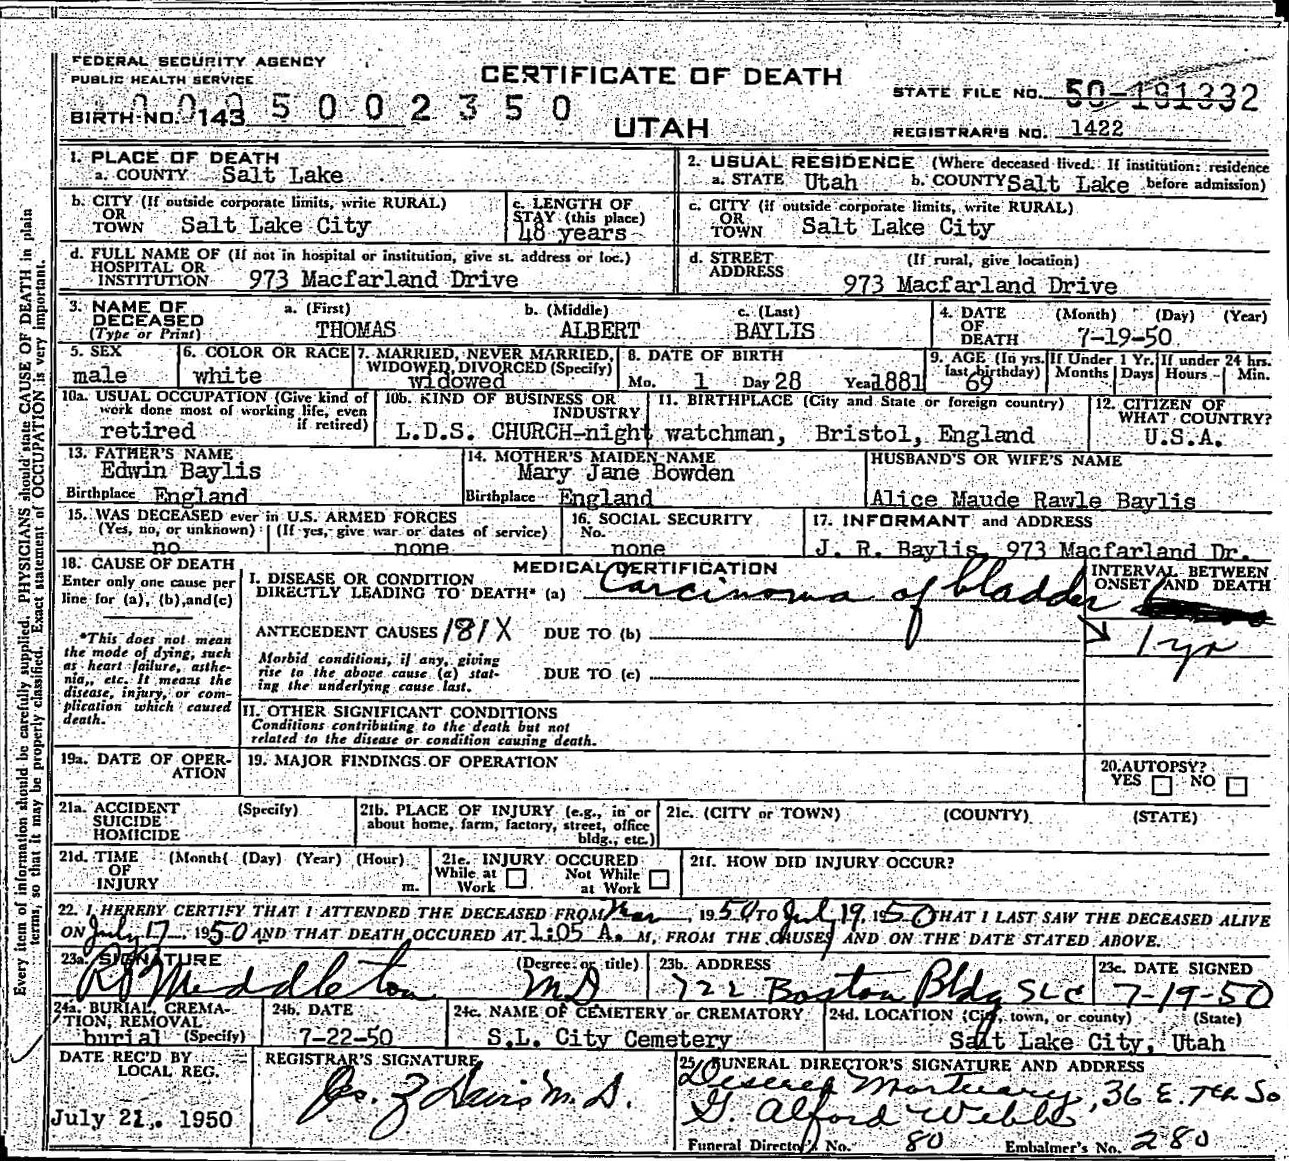 FEDERAL SECURITY AGENCY
PUBLIC HEALTH SERVICE
CERTIFICATE OF DEATH
STATE FILE NO. 50-191332
BIRTH NO. 143 0095002350
UTAH
REGISTRAR'S NO. 1422
1. PLACE OF DEATH
a. COUNTY Salt Lake
2. USUAL RESIDENCE (Where deceased lived. If institution: residence
a. STATE Utah b. COUNTY Salt Lake before admission)
b. CITY (If outside corporate limits, write RURAL)
OR
TOWN Salt Lake City
c. LENGTH OF
STAY (this place)
48 years
c. CITY (if outside corporate limits, write RURAL)
OR
TOWN Salt Lake City
d. FULL NAME OF (If not in hospital or institution, give st. address or loc.)
HOSPITAL OR
INSTITUTION 973 Macfarland Drive
d. STREET (If rural, give location)
ADDRESS
973 Macfarland Drive
3. NAME OF DECEASED
(Type or Print)
a. (First) b. (Middle) c. (Last)
THOMAS ALBERT BAYLIS
4. DATE OF DEATH (Month) (Day) (Year)
7-19-50
5. SEX
male
6. COLOR OR RACE
white
7. MARRIED, NEVER MARRIED,
WIDOWED, DIVORCED (Specify)
widowed
8. DATE OF BIRTH
Mo. 1 Day 28 Year 1881
9. AGE (In yrs. last birthday)
69
If Under 1 Yr.
Months Days
If under 24 hrs.
Hours Min.
10a. USUAL OCCUPATION (Give kind of
work done most of working life, even
if retired)
retired
10b. KIND OF BUSINESS OR
INDUSTRY
L.D.S. CHURCH-night watchman,
11. BIRTHPLACE (City and State or foreign country)
Bristol, England
12. CITIZEN OF
WHAT COUNTRY?
U.S.A.
13. FATHER'S NAME
Edwin Baylis
Birthplace England
14. MOTHER'S MAIDEN NAME
Mary Jane Bowden
Birthplace England
HUSBAND'S OR WIFE'S NAME
Alice Maude Rawle Baylis
15. WAS DECEASED ever in U.S. ARMED FORCES
(Yes, no, or unknown) (If yes, give war or dates of service)
no none
16. SOCIAL SECURITY
No.
none
17. INFORMANT and ADDRESS
J. R. Baylis, 973 Macfarland Dr.
18. CAUSE OF DEATH
Enter only one cause per
line for (a), (b), and (c)
*This does not mean
the mode of dying, such
as heart failure, asthe-
nia, etc. It means the
disease, injury, or com-
plication which caused
death.
MEDICAL CERTIFICATION
I. DISEASE OR CONDITION
DIRECTLY LEADING TO DEATH* (a) Carcinoma of bladder
INTERVAL BETWEEN
ONSET AND DEATH
1 yr
ANTECEDENT CAUSES 181X DUE TO (b)
Morbid conditions, if any, giving
rise to the above cause (a) stat-
ing the underlying cause last.
DUE TO (c)
II. OTHER SIGNIFICANT CONDITIONS
Conditions contributing to the death but not
related to the disease or condition causing death.
19a. DATE OF OPER-
ATION
19. MAJOR FINDINGS OF OPERATION
20. AUTOPSY?
YES NO
21a. ACCIDENT (Specify)
SUICIDE
HOMICIDE
21b. PLACE OF INJURY (e.g., in or
about home, farm, factory, street, office
bldg., etc.)
21c. (CITY or TOWN) (COUNTY) (STATE)
21d. TIME (Month) (Day) (Year) (Hour)
OF
INJURY m.
21e. INJURY OCCURED
While at Work Not While at Work
21f. HOW DID INJURY OCCUR?
22. I HEREBY CERTIFY THAT I ATTENDED THE DECEASED FROM Mar, 1950 TO July 19, 1950 THAT I LAST SAW THE DECEASED ALIVE
ON July 17, 1950 AND THAT DEATH OCCURED AT 1:05 A. M, FROM THE CAUSES AND ON THE DATE STATED ABOVE.
23a. SIGNATURE (Degree or title)
Middleton MD
23b. ADDRESS
722 Boston Bldg SLC
23c. DATE SIGNED
7-19-50
24a. BURIAL, CREMA-
TION, REMOVAL
burial (Specify)
24b. DATE
7-22-50
24c. NAME OF CEMETERY or CREMATORY
S.L. City Cemetery
24d. LOCATION (City, town, or county) (State)
Salt Lake City, Utah
DATE REC'D BY
LOCAL REG.
July 21, 1950
REGISTRAR'S SIGNATURE
Jos. Z Davis M.D.
25. FUNERAL DIRECTOR'S SIGNATURE AND ADDRESS
Deseret Mortuary, 36 E. 7th So
G. Alford Webb
Funeral Director's No. 80 Embalmer's No. 280
Every item of information should be carefully supplied. PHYSICIANS should state CAUSE OF DEATH in plain
terms, so that it may be properly classified. Exact statement of OCCUPATION is very important.